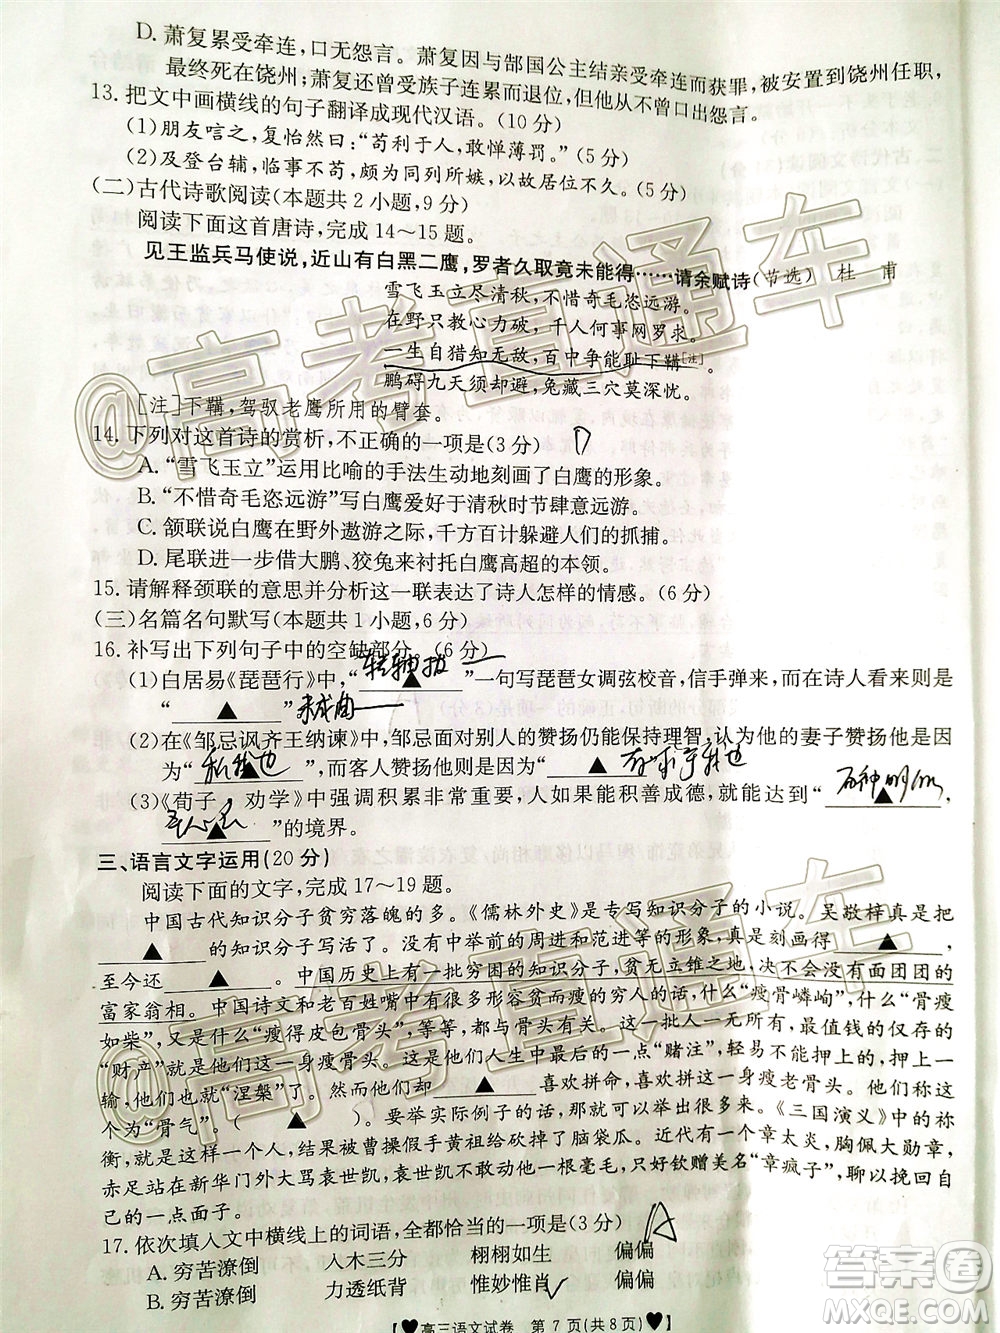 D. 萧复累受牵连，口无怨言。萧复因与郜国公主结亲受牵连而获罪，被安置到饶州任职，
最终死在饶州；萧复还曾受族子连累而退位，但他从不曾口出怨言。
13. 把文中画横线的句子翻译成现代汉语。(10分)
(1)朋友唁之，复怡然曰：“苟利于人，敢惮薄罚。”(5分)
(2)及登台辅，临事不苟，颇为同列所嫉，以故居位不久。(5分)
(二)古代诗歌阅读(本题共2小题，9分)
阅读下面这首唐诗，完成14～15题。
见王监兵马使说，近山有白黑二鹰，罗者久取竟未能得……请余赋诗(节选) 杜 甫
雪飞玉立尽清秋，不惜奇毛恣远游。
在野只教心力破，千人何事网罗求。
一生自猎知无敌，百中争能耻下鞲[注]。
鹏碍九天须却避，兔藏三穴莫深忧。
[注]下鞲，驾驭老鹰所用的臂套。
14. 下列对这首诗的赏析，不正确的一项是(3分) D
A. “雪飞玉立”运用比喻的手法生动地刻画了白鹰的形象。
B. “不惜奇毛恣远游”写白鹰爱好于清秋时节肆意远游。
C. 颔联说白鹰在野外遨游之际，千方百计躲避人们的抓捕。
D. 尾联进一步借大鹏、狡兔来衬托白鹰高超的本领。
15. 请解释颈联的意思并分析这一联表达了诗人怎样的情感。(6分)
(三)名篇名句默写(本题共1小题，6分)
16. 补写出下列句子中的空缺部分。(6分)
(1)白居易《琵琶行》中，“▲”一句写琵琶女调弦校音，信手弹来，而在诗人看来则是
“▲” 未成曲
(2)在《邹忌讽齐王纳谏》中，邹忌面对别人的赞扬仍能保持理智，认为他的妻子赞扬他是因
为“▲”，而客人赞扬他则是因为“▲”。
(3)《荀子·劝学》中强调积累非常重要，人如果能积善成德，就能达到“▲，
▲”的境界。
三、语言文字运用(20分)
阅读下面的文字，完成17～19题。
中国古代知识分子贫穷落魄的多。《儒林外史》是专写知识分子的小说。吴敬梓把
▲的知识分子写活了。没有中举前的周进和范进等的形象，真是刻画得▲，
至今还▲。中国历史上有一批穷困的知识分子，贫无立锥之地，绝没有面团团的
富家翁相。中国诗文和老百姓嘴中都很形象，什么“瘦骨嶙峋”，什么“骨瘦
如柴”，又是什么“瘦得皮包骨头”，等等，都与骨头有关。他们最值钱的仅存的
“财产”就是他们一身瘦骨头。这是他们人生中最后的一点“赌注”，轻易不能押上的，押上一
输，他们也就“涅槃”了。然而他们却▲喜欢拼命，喜欢拼这一身瘦老骨头。他们称这个
为“骨气”。(　　)。要举实际例子的话，那还是可以举出很多来。《三国演义》中的祢
衡，就是这样一个人，结果被曹操假手黄祖给砍掉了脑袋瓜。近代有一个章太炎，胸佩大勋章，
赤足站在新华门外大骂袁世凯，袁世凯不敢动他一根毫毛，只好钦赠美名“章疯子”，聊以挽回自
己的一点面子。
17. 依次填入文中横线上的词语，全都恰当的一项是(3分) A
A. 穷苦潦倒 入木三分 栩栩如生 偏偏
B. 穷苦潦倒 力透纸背 惟妙惟肖 偏偏
【♥高三语文试卷 第7页(共8页)♥】
答案圈
MXQE.COM
@高考直通车
@高考直通车